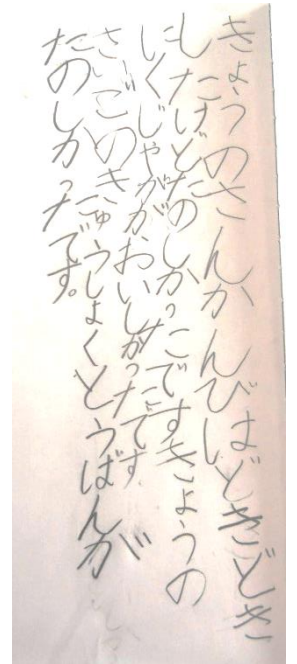 きょうのさんかんびはどきどき
したけどたのしかったですきょうの
にくじゃががおいしかったです
さいごのきゅうしょくとうばんが
たのしかったです。